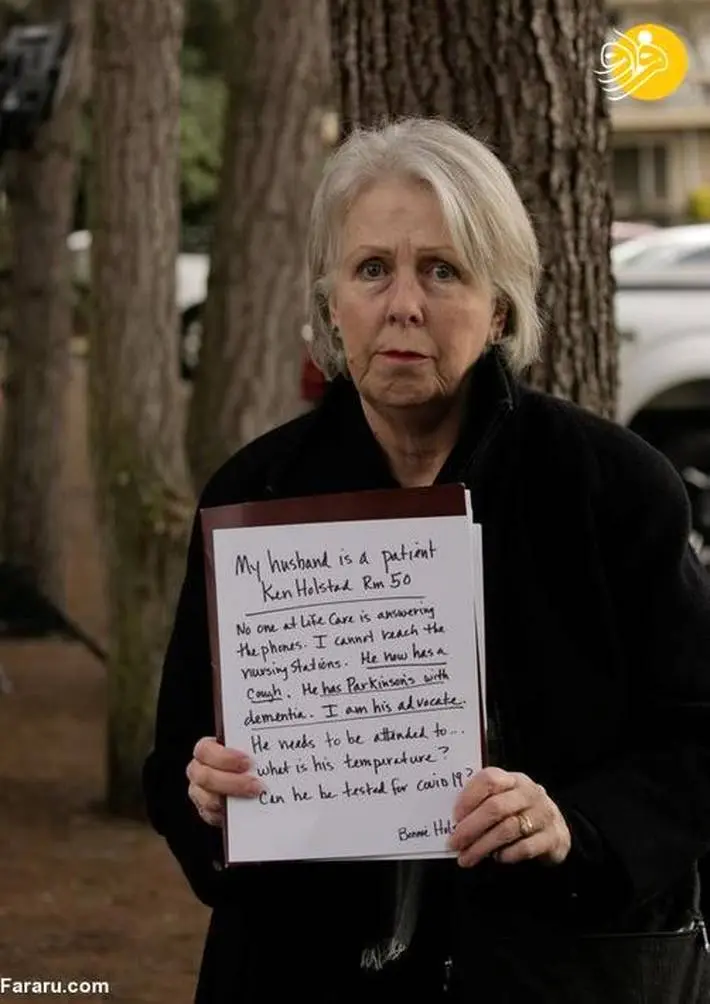 My husband is a patient
Ken Holstad Rm 50
No one at Life Care is answering
the phones. I cannot reach the
nursing stations. He now has a
cough. He has Parkinson's with
dementia. I am his advocate.
He needs to be attended to...
what is his temperature?
Can he be tested for covid 19?
Bonnie Hols
Fararu.com